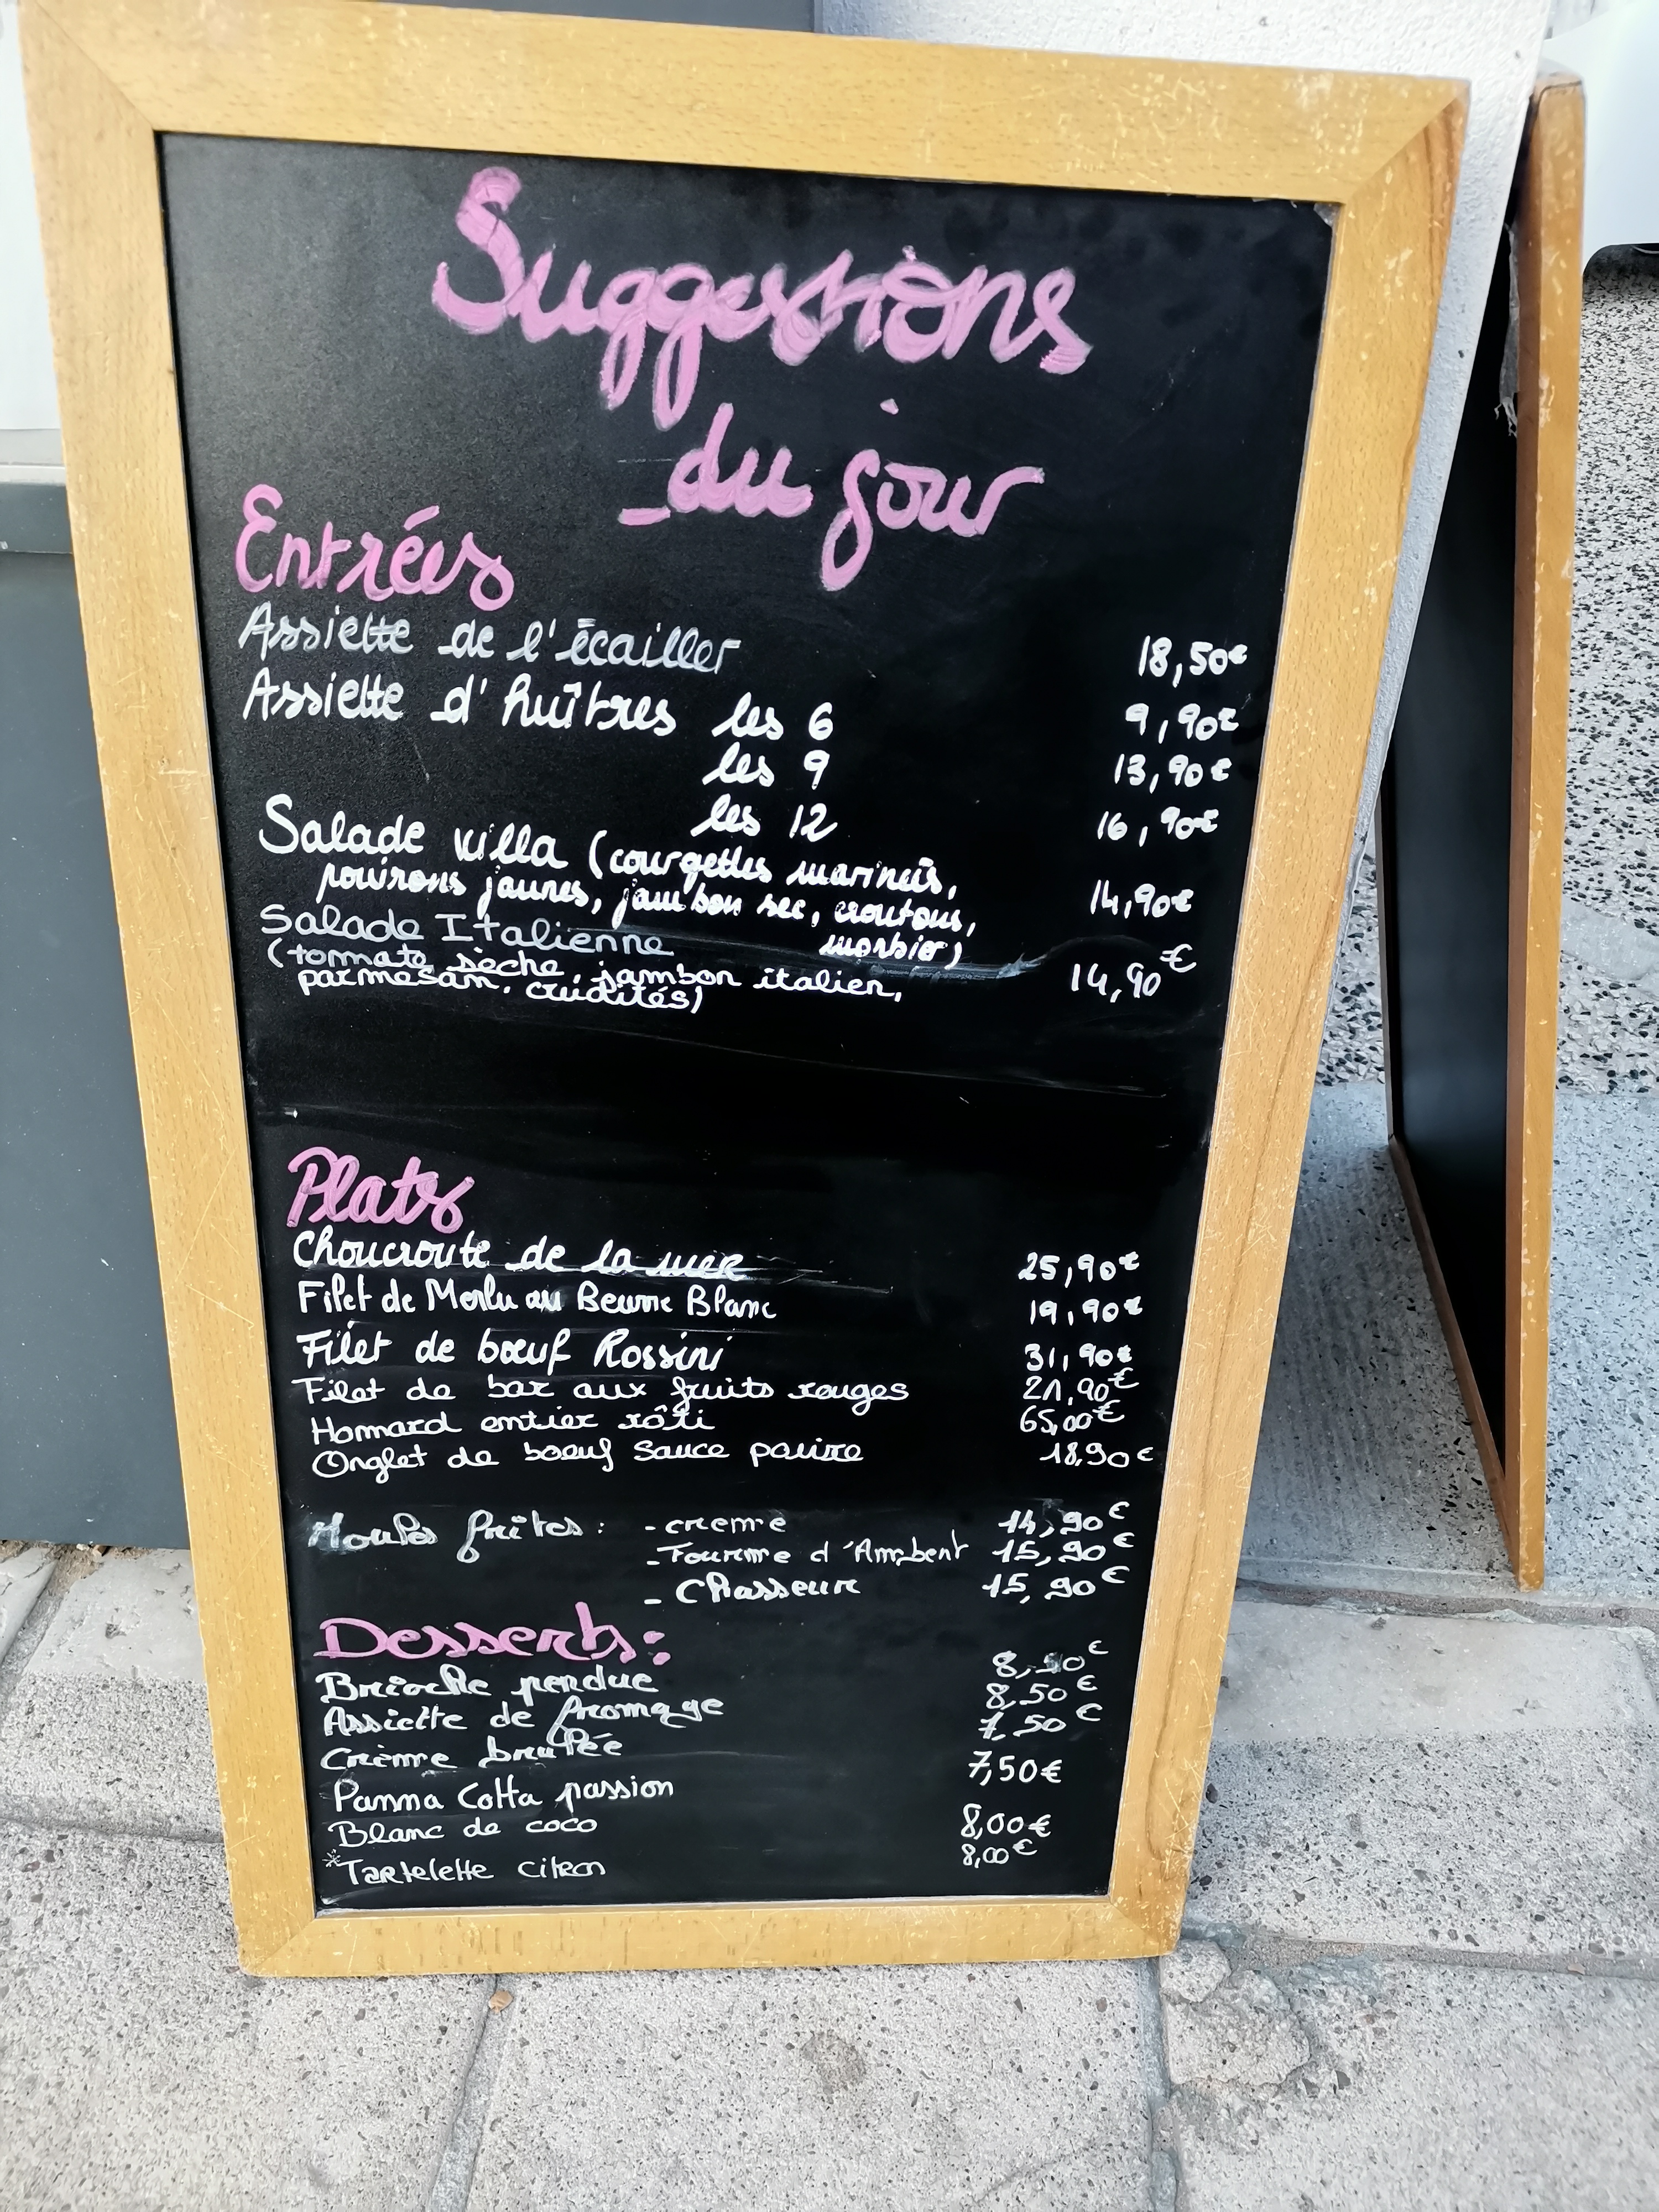 Suggestions
du jour
Entrées
Assiette de l'écailler 18,50€
Assiette d'huîtres les 6 9,90€
les 9 13,90€
les 12 16,90€
Salade villa (courgettes marinées,
poivrons jaunes, jambon sec, croutons, 14,90€
morbier)
Salade Italienne
(tommate sèche, jambon italien, 14,90€
parmesam, crudités)
Plats
Choucroute de la mer 25,90€
Filet de Merlu au Beurre Blanc 19,90€
Filet de bœuf Rossini 31,90€
Filet de bar aux fruits rouges 21,90€
Hommard entier rôti 65,00€
Onglet de boeuf sauce poivre 18,90€
Moules frites : - creme 14,90€
- Fourme d'Ambert 15,90€
- Chasseur 15,90€
Desserts :
Brioche perdue €
Assiette de fromage 8,50€
Crème brulée 7,50€
Panna Cotta passion 7,50€
Blanc de coco 8,00€
*Tartelette citron 8,00€